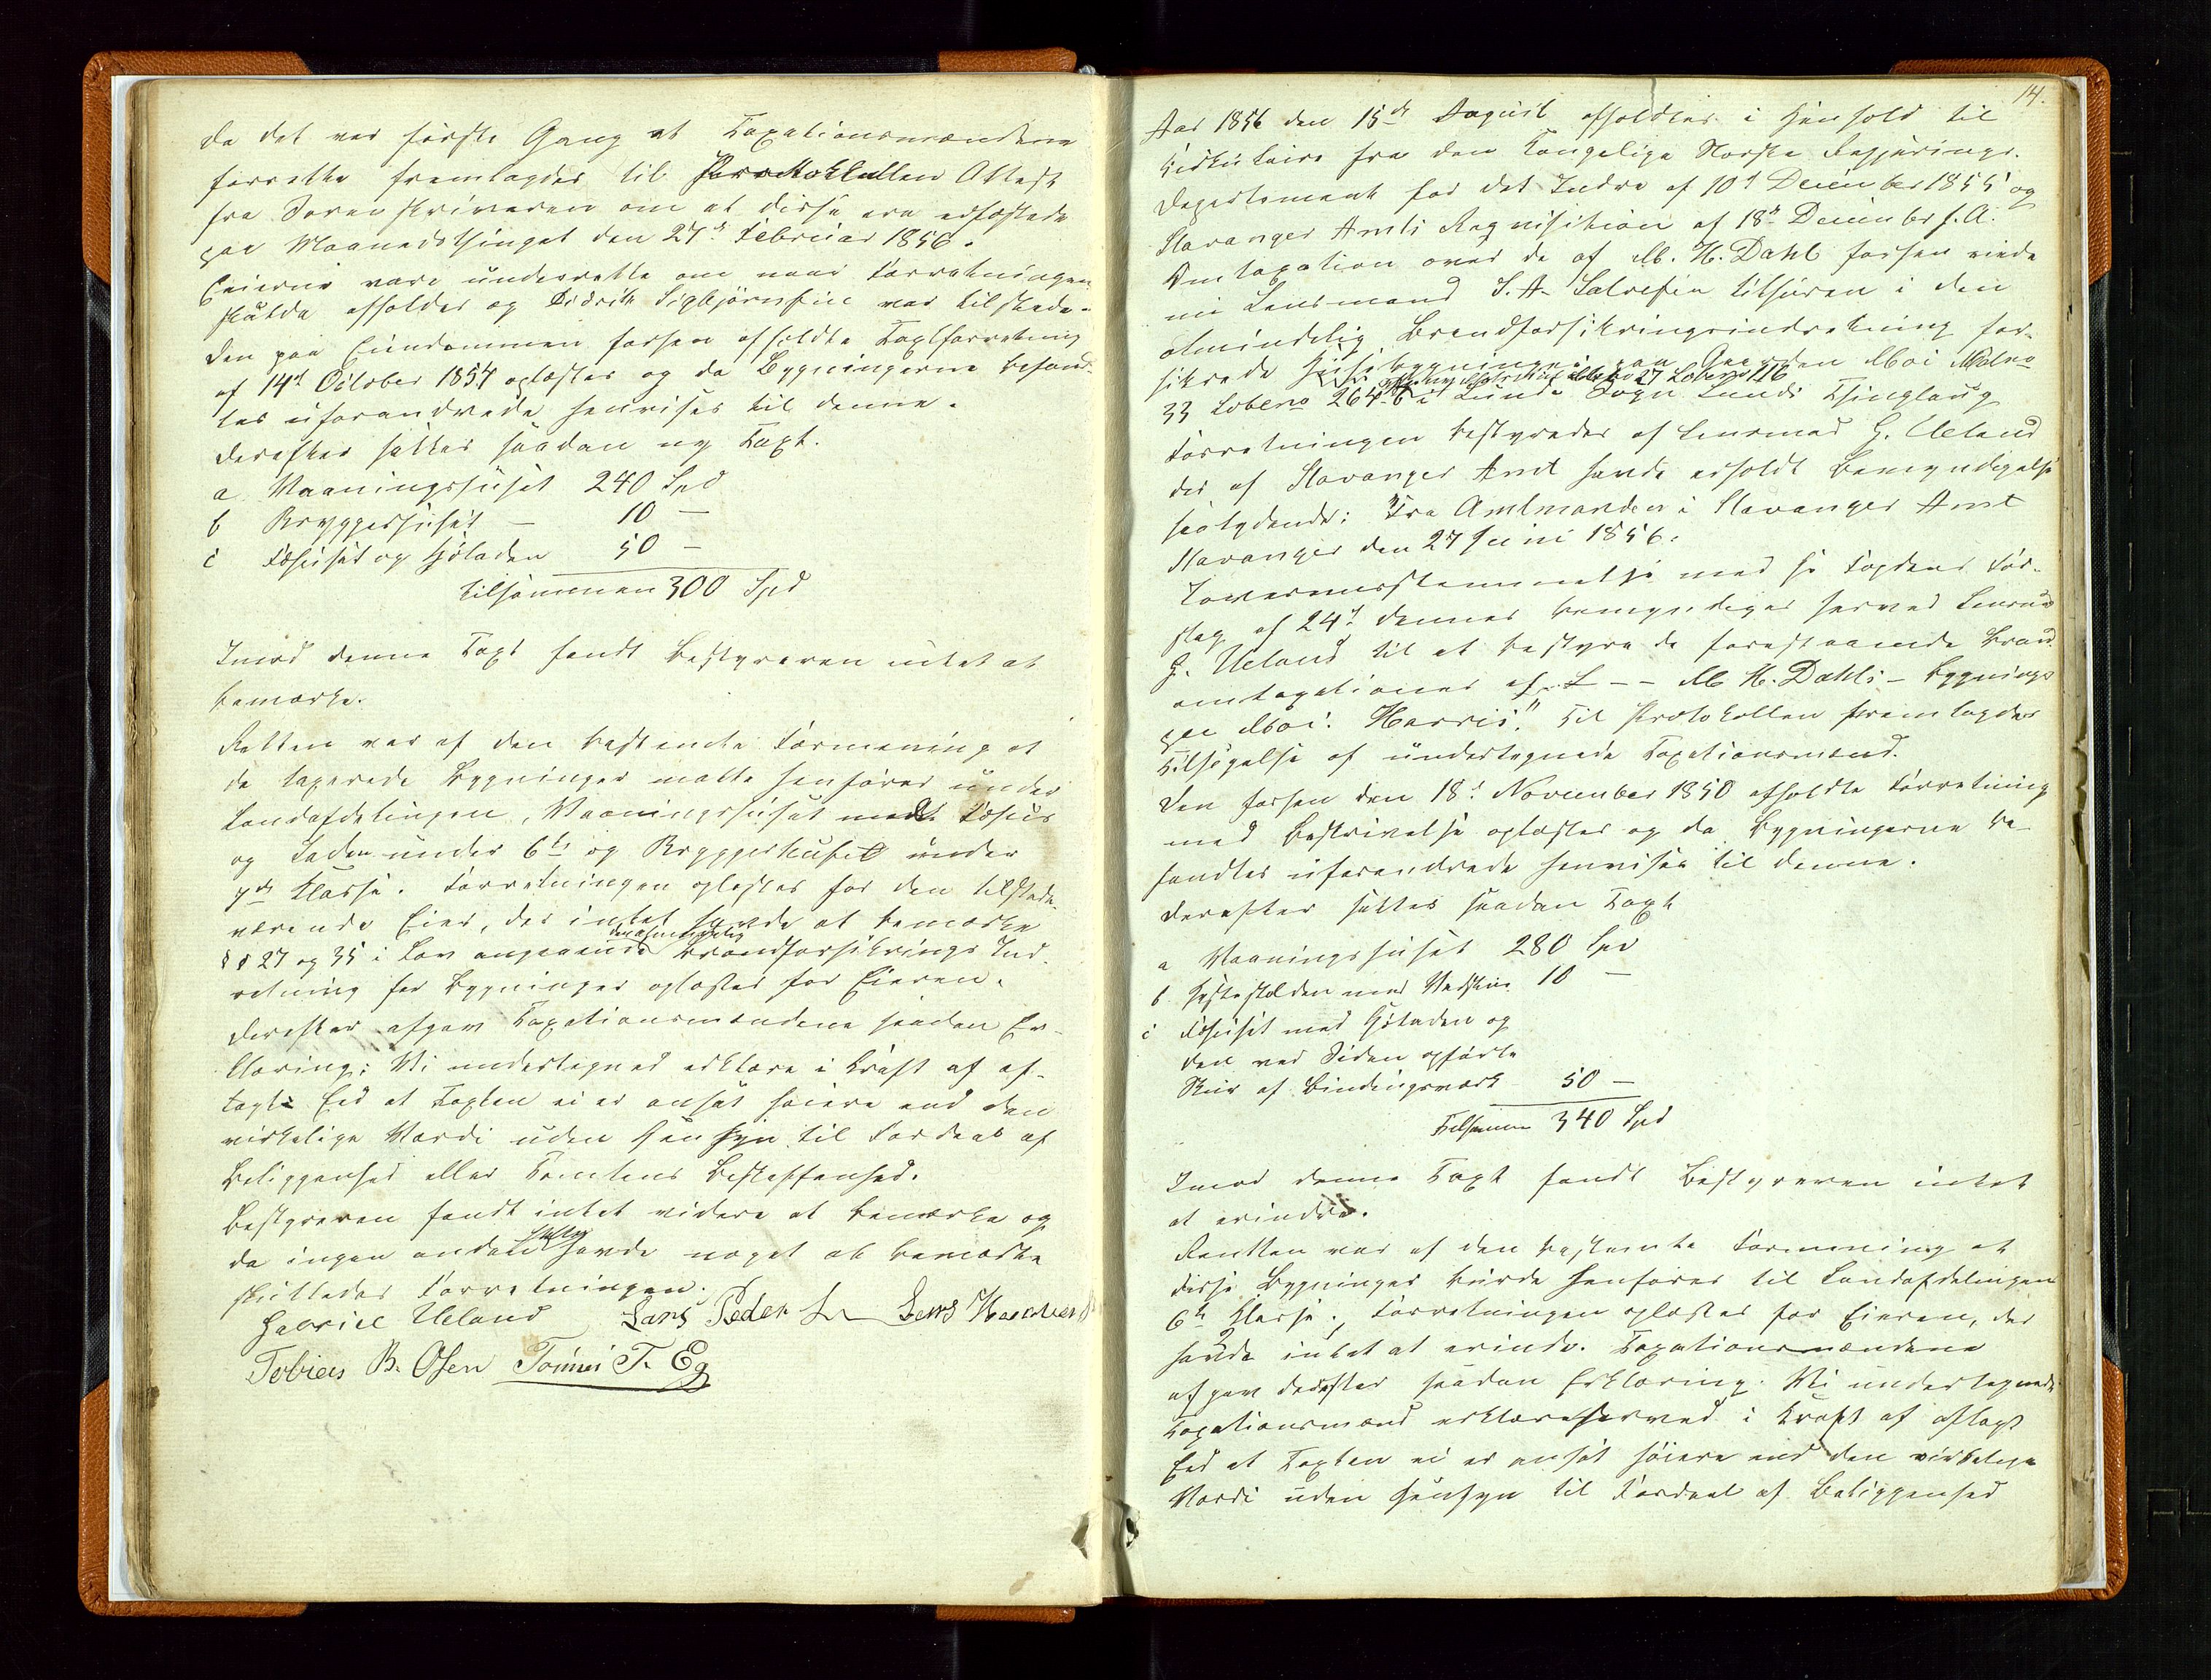 da det var første Gang at Taxationsmændene
forrette fremlagdes til Protokollen Attest
fra Sorenskriveren om at disse ere edfæstede
paa Maanedsthinget den 27de Februar 1856.
Eierne vare underrette om naar Forretningen
skulde afholdes og Didrik Sigbjørnsen var tilstede.
Den paa Eiendommen forhen afholdte Taxtforretning
af 14de October 1854 oplæstes og da Bygningerne befand-
tes uforandrede henvises til denne.
Derefter sattes saadan ny Taxt.
a Vaaningshuset 240 Spd
b Bryggerhuset — 10 —
c Fæhuset og Høladen 50 —
tilsammen 300 Spd
Imod denne Taxt fandt Bestyreren intet at
bemærke.
Retten var af den bestemte Formening at
de taxerede Bygninger maatte henføres under
Landafdelingen, Vaaningshuset med Fæhus
og Laden under 6te og Bryggerhuset under
7de Klasse. Forretningen oplæstes for den tilstede-
værende Eier, der intet havde at bemærke
den almindelig
§§ 27 og 35 i Lov angaaende Brandforsikrings Ind-
retning for Bygninger oplæstes for Eieren.
Derefter afgav Taxationsmændene saadan Er-
klæring: Vi undertegned erklære i Kraft af af-
lagte Eed at Taxten ei er ansat høiere end den
virkelige Værdi uden Hensyn til Fordeel af
Beliggenhed eller Tomtens Beskaffenhed.
Bestyreren fandt intet videre at bemærke og
da ingen anden heller havde noget at bemærke
sluttedes Forretningen.
Gabriel Ueland Lars Peder Lars
Tobias B. Osen Tønnes T. Eg
14.
Aar 1856 den 15de August afholdtes i Henhold til
Cirkulaire fra den Kongelige Norske Regjerings-
Departement for det Indre af 10de December 1855 og
Stavanger Amts Requisition af 18de December s. A.
Omtaxation over de af M. H. Dahl forhen eiede
nu Lensmand S. A. Salvesen tilhøren i den
almindelig Brandforsikringsindretning for-
sikrede Huusebygninger paa Gaarden Moi Matno
27 Lobeno 116
33 Lobeno 264 b i Lunde Sogn Lunds Thinglaug
Forretningen bestyredes af Lensmand G. Ueland
der af Stavanger Amt havde erholdt Bemyndigelse
saalydende: "Fra Amtmanden i Stavanger Amt
Stavanger den 27 Juni 1856.
I Overensstemmelse med Hr Fogdens For-
slag af 24de dennes bemyndiges herved Lensmd
G. Ueland til at bestyre de forestaaende Brand-
omtaxationer af — — M H. Dahls — Bygninger
paa Moi. Harris". Til Protokollen fremlagdes
Tilsigelse af undertegnede Taxationsmænd.
Den forhen den 18de November 1850 afholdte Forretning
med Beskrivelse oplæstes og da Bygningerne be-
fandtes uforandrede henvises til denne.
Derefter sattes saadan Taxt
a Vaaningshuset 280 Spd
b Hestestalden med Vedskur 10 —
c Fæhuset med Høladen og
den ved Siden opførte
Skur af Bindingsværk 50 —
Tilsammen 340 Spd
Imod denne Taxt fandt Bestyreren intet
at erindre.
Retten var af den bestemte Formening at
disse Bygninger burde henføres til Landafdelingen
6te Klasse. Forretningen oplæstes for Eieren, der
havde intet at erindre. Taxationsmændene
afgav derefter saadan Erklæring: Vi undertegnede
Taxationsmænd erklære herved i Kraft af aflagt
Eed at Taxten ei er ansat høiere end den virkelige
Værdi uden Hensyn til Fordeel af Beliggenhed